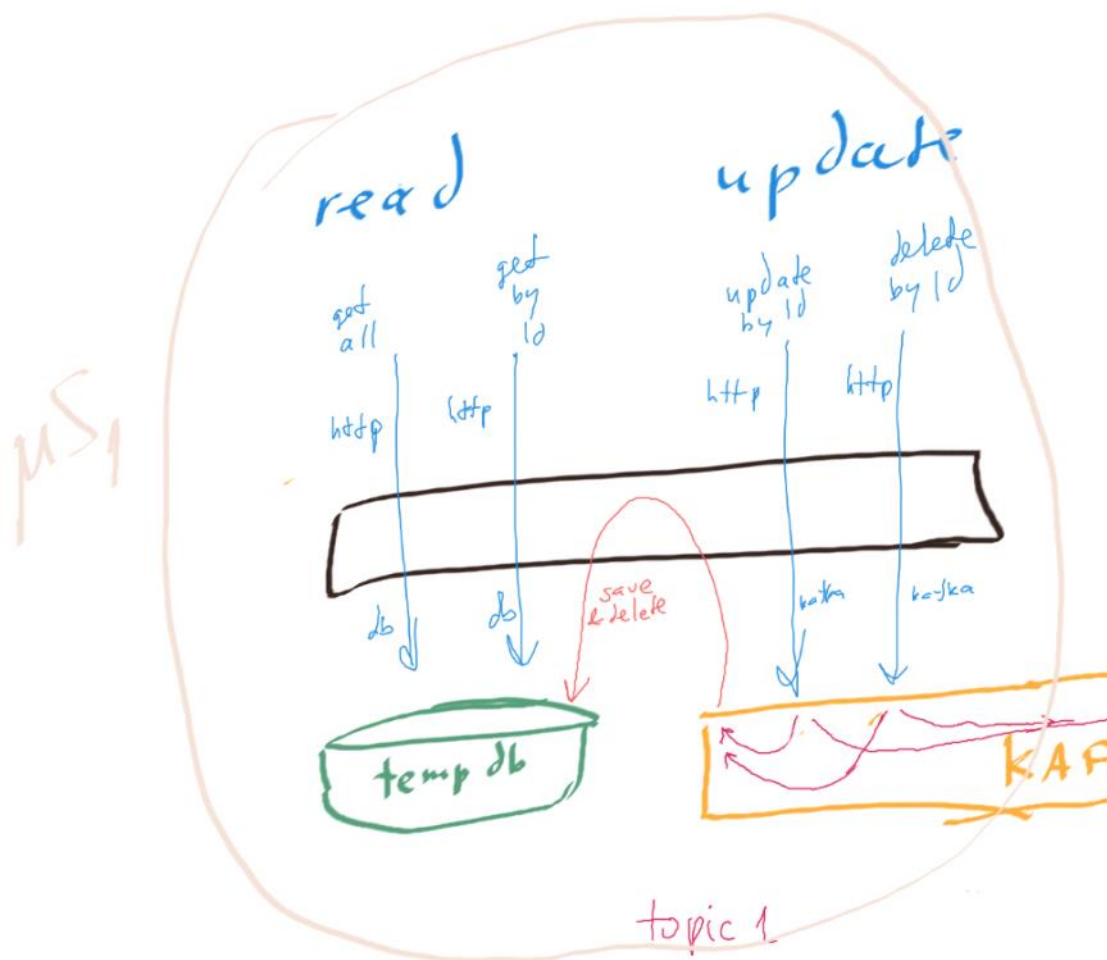 read
update
get
all
get
by
Id
update
by Id
delete
by Id
http
http
http
http
db
db
save
& delete
kafka
kafka
temp db
KAF
topic 1
µS1